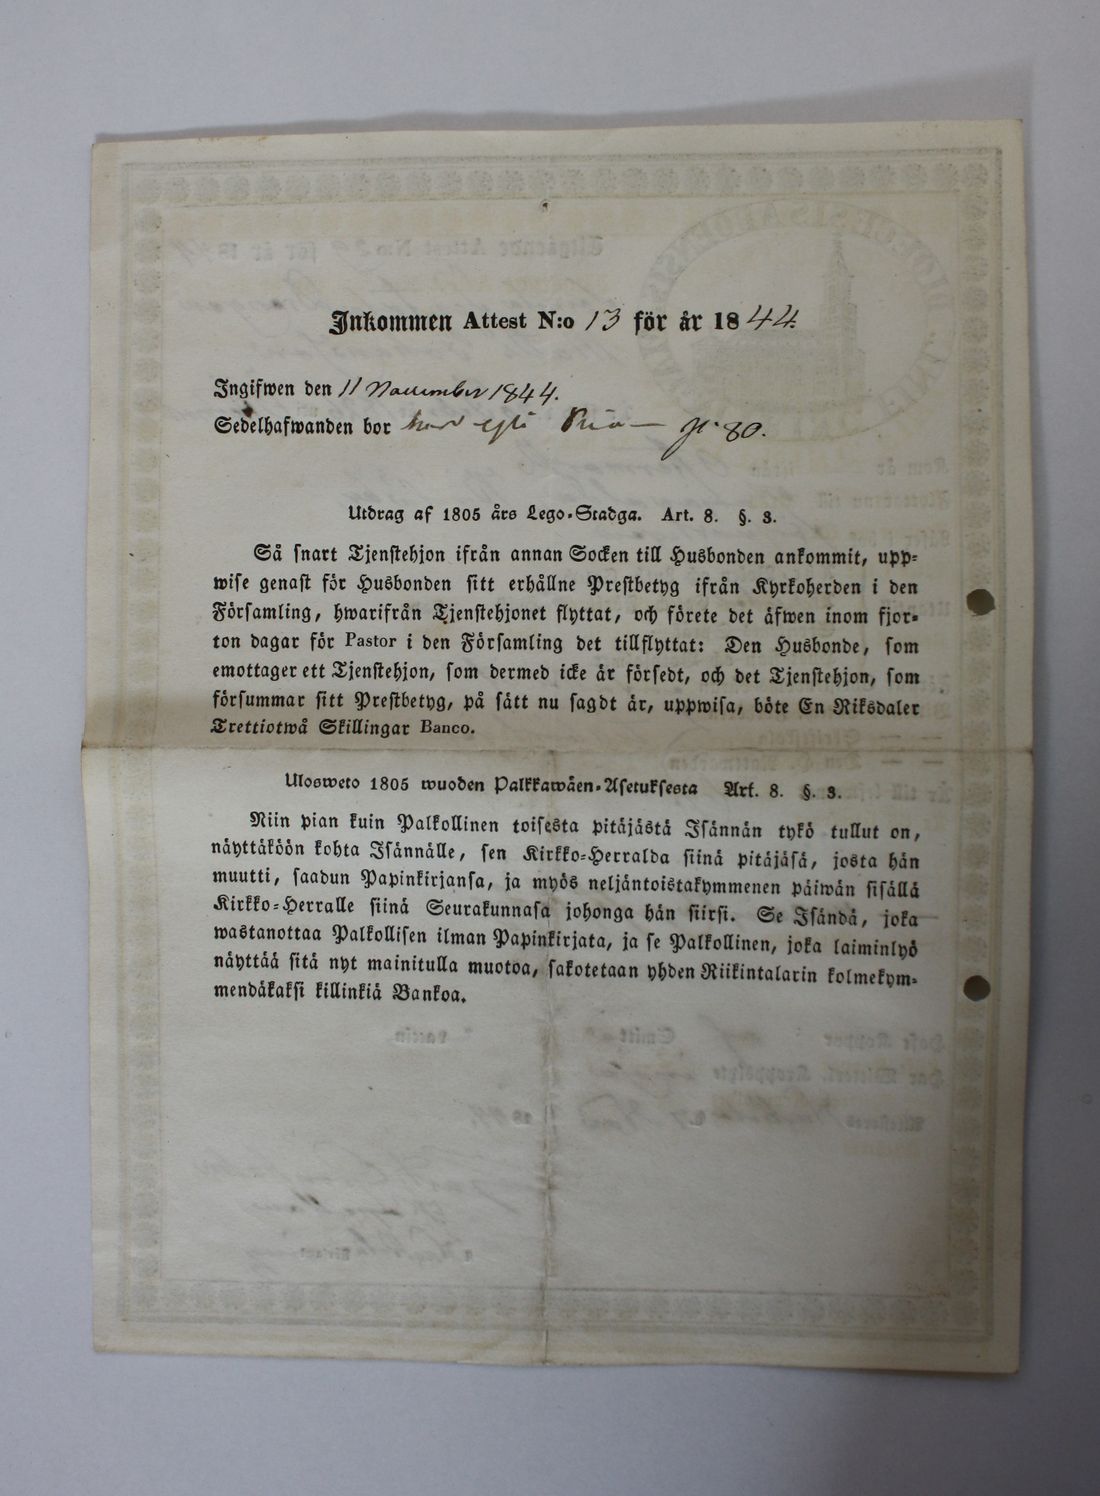 Inkommen Attest N:o 13 för år 1844.
Ingifwen den 11 November 1844.
Sedelhafwanden bor
80.
Utdrag af 1805 års Lego-Stadga. Art. 8. §. 3.
Så snart Tjenstehjon ifrån annan Socken till Husbonden ankommit, upp-
wise genast för Husbonden sitt erhållne Prestbetyg ifrån Kyrkoherden i den
Församling, hwarifrån Tjenstehjonet flyttat, och förete det äfwen inom fjor-
ton dagar för Pastor i den Församling det tillflyttat: Den Husbonde, som
emottager ett Tjenstehjon, som dermed icke är försedt, och det Tjenstehjon, som
försummar sitt Prestbetyg, på sätt nu sagdt är, uppwisa, böte En Riksdaler
Trettiotwå Skillingar Banco.
Ulosweto 1805 wuoden Palkkawäen-Asetuksesta Art. 8. §. 3.
Niin pian kuin Palkollinen toisesta pitäjästä Isännän tykö tullut on,
näyttäköön kohta Isännälle, sen Kirkko-Herralda siinä pitäjäsä, josta hän
muutti, saadun Papinkirjansa, ja myös neljäntoistakymmenen päiwän sisällä
Kirkko-Herralle siinä Seurakunnasa johonga hän siirsi. Se Isändä, joka
wastanottaa Palkollisen ilman Papinkirjata, ja se Palkollinen, joka laiminlyö
näyttää sitä nyt mainitulla muotoa, sakotetaan yhden Riikintalarin kolmekym-
mendäkaksi killinkiä Bankoa.